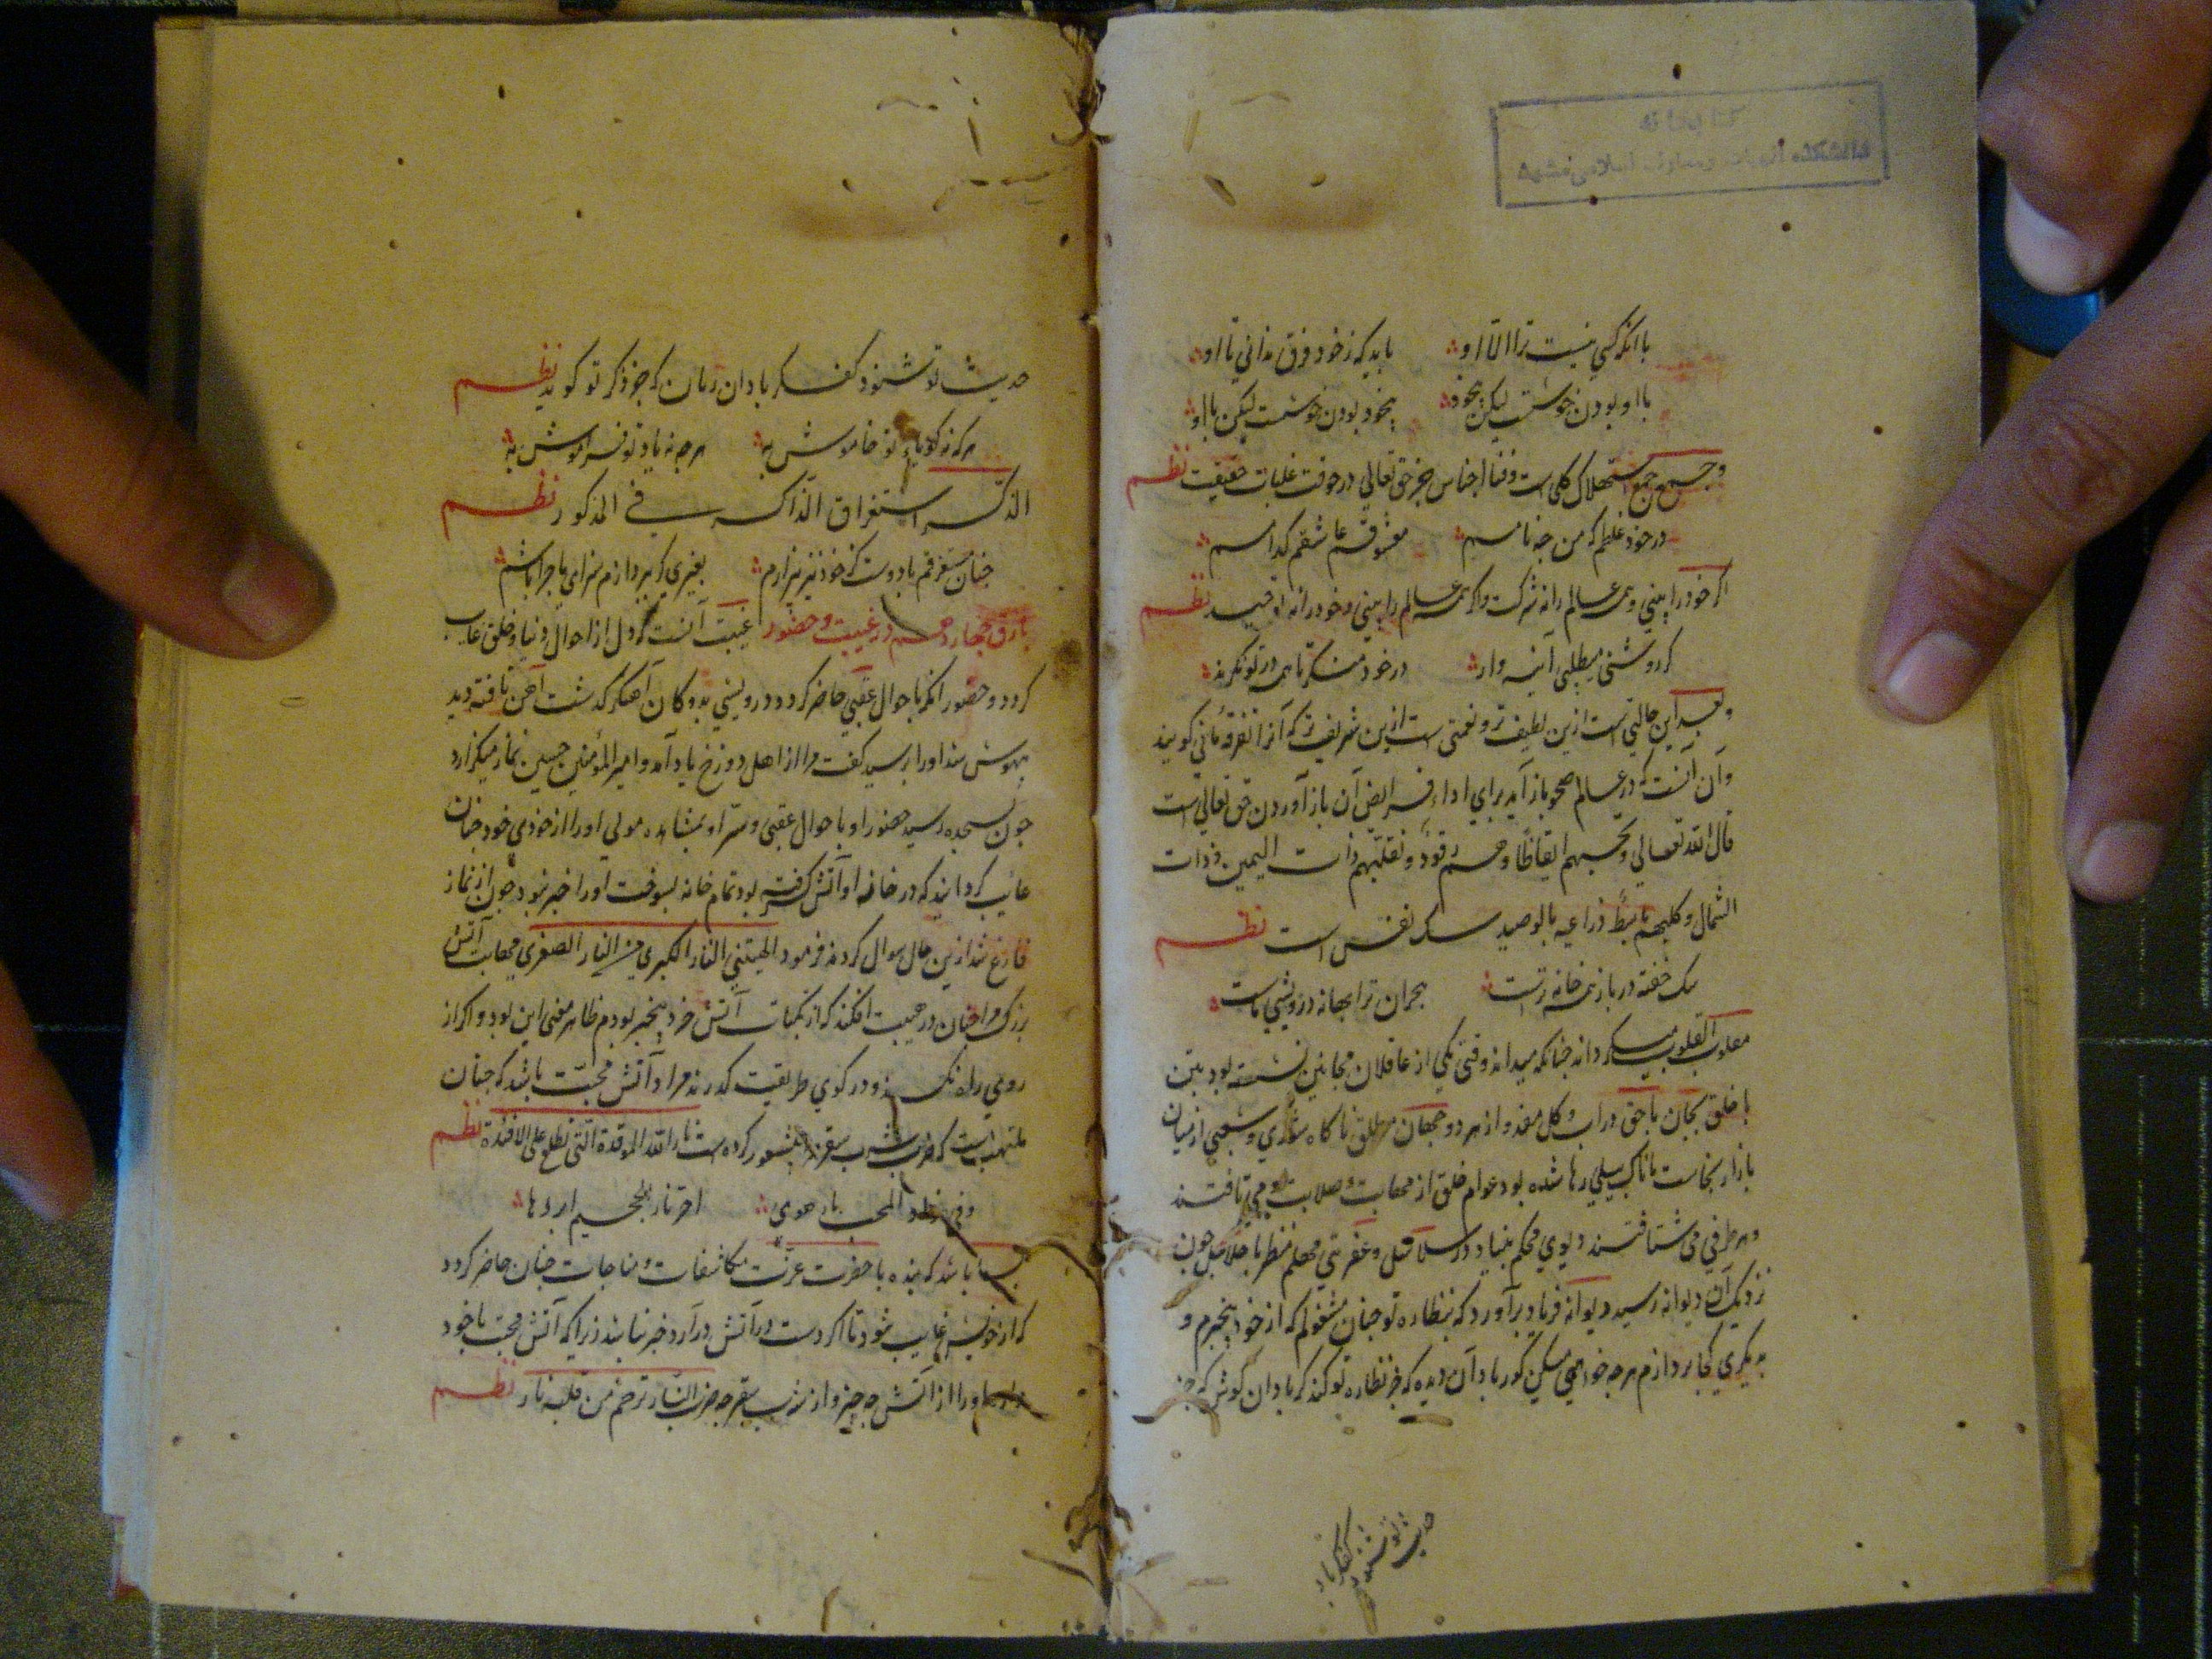 با آنکه کسی نیست ترا الا او باید که ز خود فرق ندانی تا او
با او بودن خوشست لیکن بیخود بیخود بودن خوشست لیکن با او
و جمع جمع استهلاک کلی است و فنا اجناس جز حق تعالی در وقت غلبات حقیقت نظم
در خود غلطم که من چه نامم معشوقم عاشقم کدامم
اگر خود را بینی و همی عالم را نه شرکت و اگر همی عالم را بینی و خود را نه توحید نظم
گر روشنی میطلبی آینه وار در خود منگر تا همه در تو نگرند
و بعد این حالتی است ازین لطیف تر و نعمتی است ازین شریف تر که آنرا تفرقه ثانی گویند
و آن آنست که در عالم صحو باز آید برای اداء فرایض آن باز آوردن حق تعالی است
قال الله تعالی و تحسبهم ایقاظا و هم رقود و نقلبهم ذات الیمین و ذات
الشمال و کلبهم باسط ذراعیه بالوصید سگ نفس است نظم
سگ خفته در باز همی خانه تست هجران ترا بهانه درویشی ماست
مقلوب القلوب میگرداند چنانکه میداند وقتی یکی از عاقلان مجانین نشسته بود بتن
با خلق بجان با حق در آب و گل مقید و از هر دو جهان مطلق ناگاه شوری و شغبی از میان
بازار بخاست تا ناک پیلی رها شده بود عوام خلق از مهابت و صلابت او می تافتند
و هر طرفی می شتافتند دیوی محکم بنیاد در سلاسل و عفریتی معلم منظر با جلاجل چون
نزدیک آن دیوانه رسید دیوانه فریاد برآورد که بنظاره تو چنان مشغولم که از خود بیخبرم و
بدیگری کجا پردازم هر چه خواهی میکن کور باد آن دیده که جز نظاره تو کند کر باد آن گوش که جز
حدیث تو شنود کفکر باد
حدیث تو شنود کفکر باد آن زبان که جز ذکر تو گوید نظم
هر که نه گویاء تو خاموش به هر چه نه یاد تو فراموش به
الذکر استغراق الذاکر فی المذکور نظم
چنان مستغرقم با دوست کز خود نیز بیزارم بغیری کی بپردازم سزای ماجرا باشم
بارق چهاردهم در غیبت و حضور غیبت آنست که دل از احوال دنیا و خلق غایب
گردد و حضور آنکه با حوال عقبی حاضر گردد درویشی بدوکان آهنگر گذشت آهن تافته دید
بیهوش شد او را پرسید گفت مرا از اهل دوزخ یاد آمد و امیر المؤمنین حسین نماز میگزارد
چون بسجده رسید حضور او باحوال عقبی و سر او بمشاهده مولی او را از خودی خود چنان
غایب گردانید که در خانه او آتش گرفته بود تمام خانه بسوخت او را خبر نبود چون از نماز
فارغ شد ازین حال سوال کردند فرمود الهیتنی النار الکبری من النار الصغری مهابت آتش
بزرگ مرا چنان در هیبت افکند که از نکبات آتش خرد بیخبر بودم ظاهر معنی این بود و اگر از
روی راه نک بند و در کوی طریقت گذرند مراد آتش محبت باشد که چنان
ملتهب است که شرب سقر را کرده است نار الله الموقدة التی تطلع علی الافئدة نظم
وفی فؤاد المحب نار هوی احر نار الجحیم ابردها
باشد که بنده با حضرت عزت مکاشفات و مناجات چنان حاضر گردد
که از خویش غایب شود تا اگر دست در آتش درآرد خبر نیابد زیرا که آتش محبت با خود
دارد او را از آتش چه خبر و از شرب سقر چه ضرب النار ترحم من قلبه نار نظم